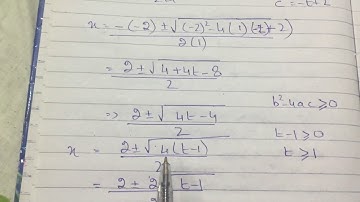 c = -t+2
x = -(-2) ± √(-2)²-4(1)(-t+2) / 2(1)
= 2 ± √4+4t-8 / 2
⇒ 2 ± √4t-4 / 2
b²-4ac ≥ 0
x = 2 ± √4(t-1) / 2
t-1 ≥ 0
t ≥ 1
= 2 ± 2 t-1